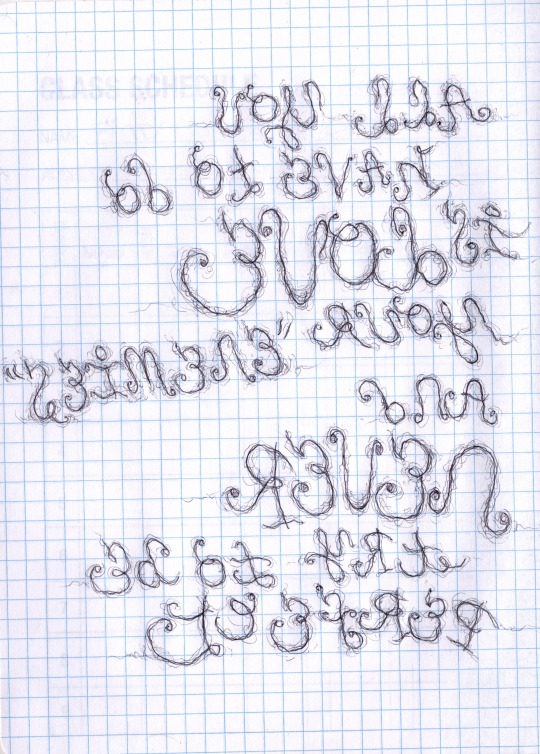 CLASS SCHEDULE
ALL YOU
HAVE TO DO
IS LOVE
YOUR "ENEMIES"
AND
NEVER
TRY TO BE
PERFECT